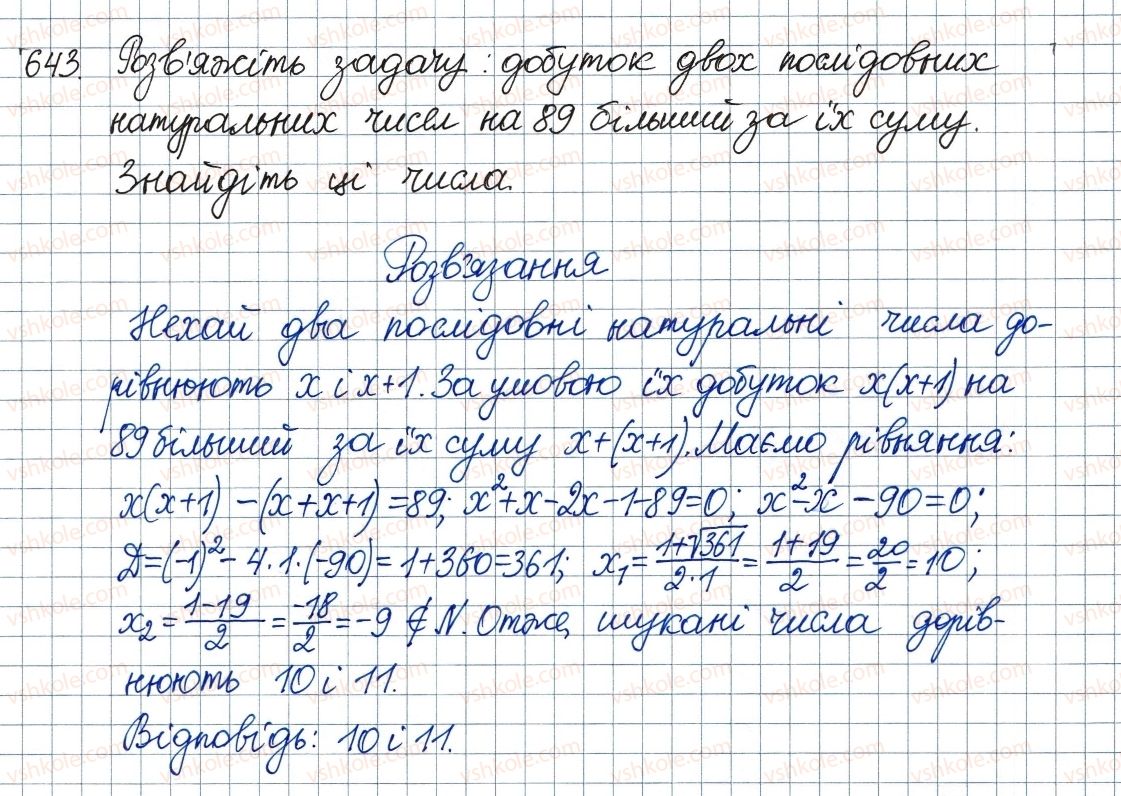 643. Розв'яжіть задачу: добуток двох послідовних
натуральних чисел на 89 більший за їх суму.
Знайдіть ці числа.
Розв'язання
Нехай два послідовні натуральні числа до-
рівнюють x і x+1. За умовою їх добуток x(x+1) на
89 більший за їх суму x+(x+1). Маємо рівняння:
x(x+1) -(x+x+1)=89; x²+x-2x-1-89=0; x²-x-90=0;
Д=(-1)²-4·1·(-90)=1+360=361; x₁=(1+√361)/(2·1)=(1+19)/2=20/2=10;
x₂=(1-19)/2=-18/2=-9 ∉ N. Отже, шукані числа дорів-
нюють 10 і 11.
Відповідь: 10 і 11.
vshkole.com